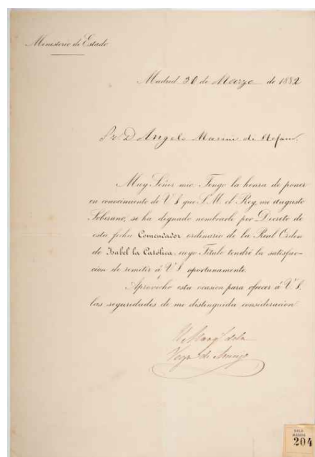 Ministerio de Estado
Madrid 20 de Marzo de 1882
Sr. D. Angelo
Muy Señor mio: Tengo la honra de poner
en conocimiento de V.S. que S.M. el Rey, mi augusto
Soberano, se ha dignado nombrarle por Decreto de
esta fecha Comendador ordinario de la Real Orden
de Isabel la Católica, cuyo Título tendré la satisfac-
cion de remitir á V.S. oportunamente.
Aprovecho esta ocasion para ofrecer á V.S.
las seguridades de mi distinguida consideracion
El Marq. de la
Vega de Armijo
204